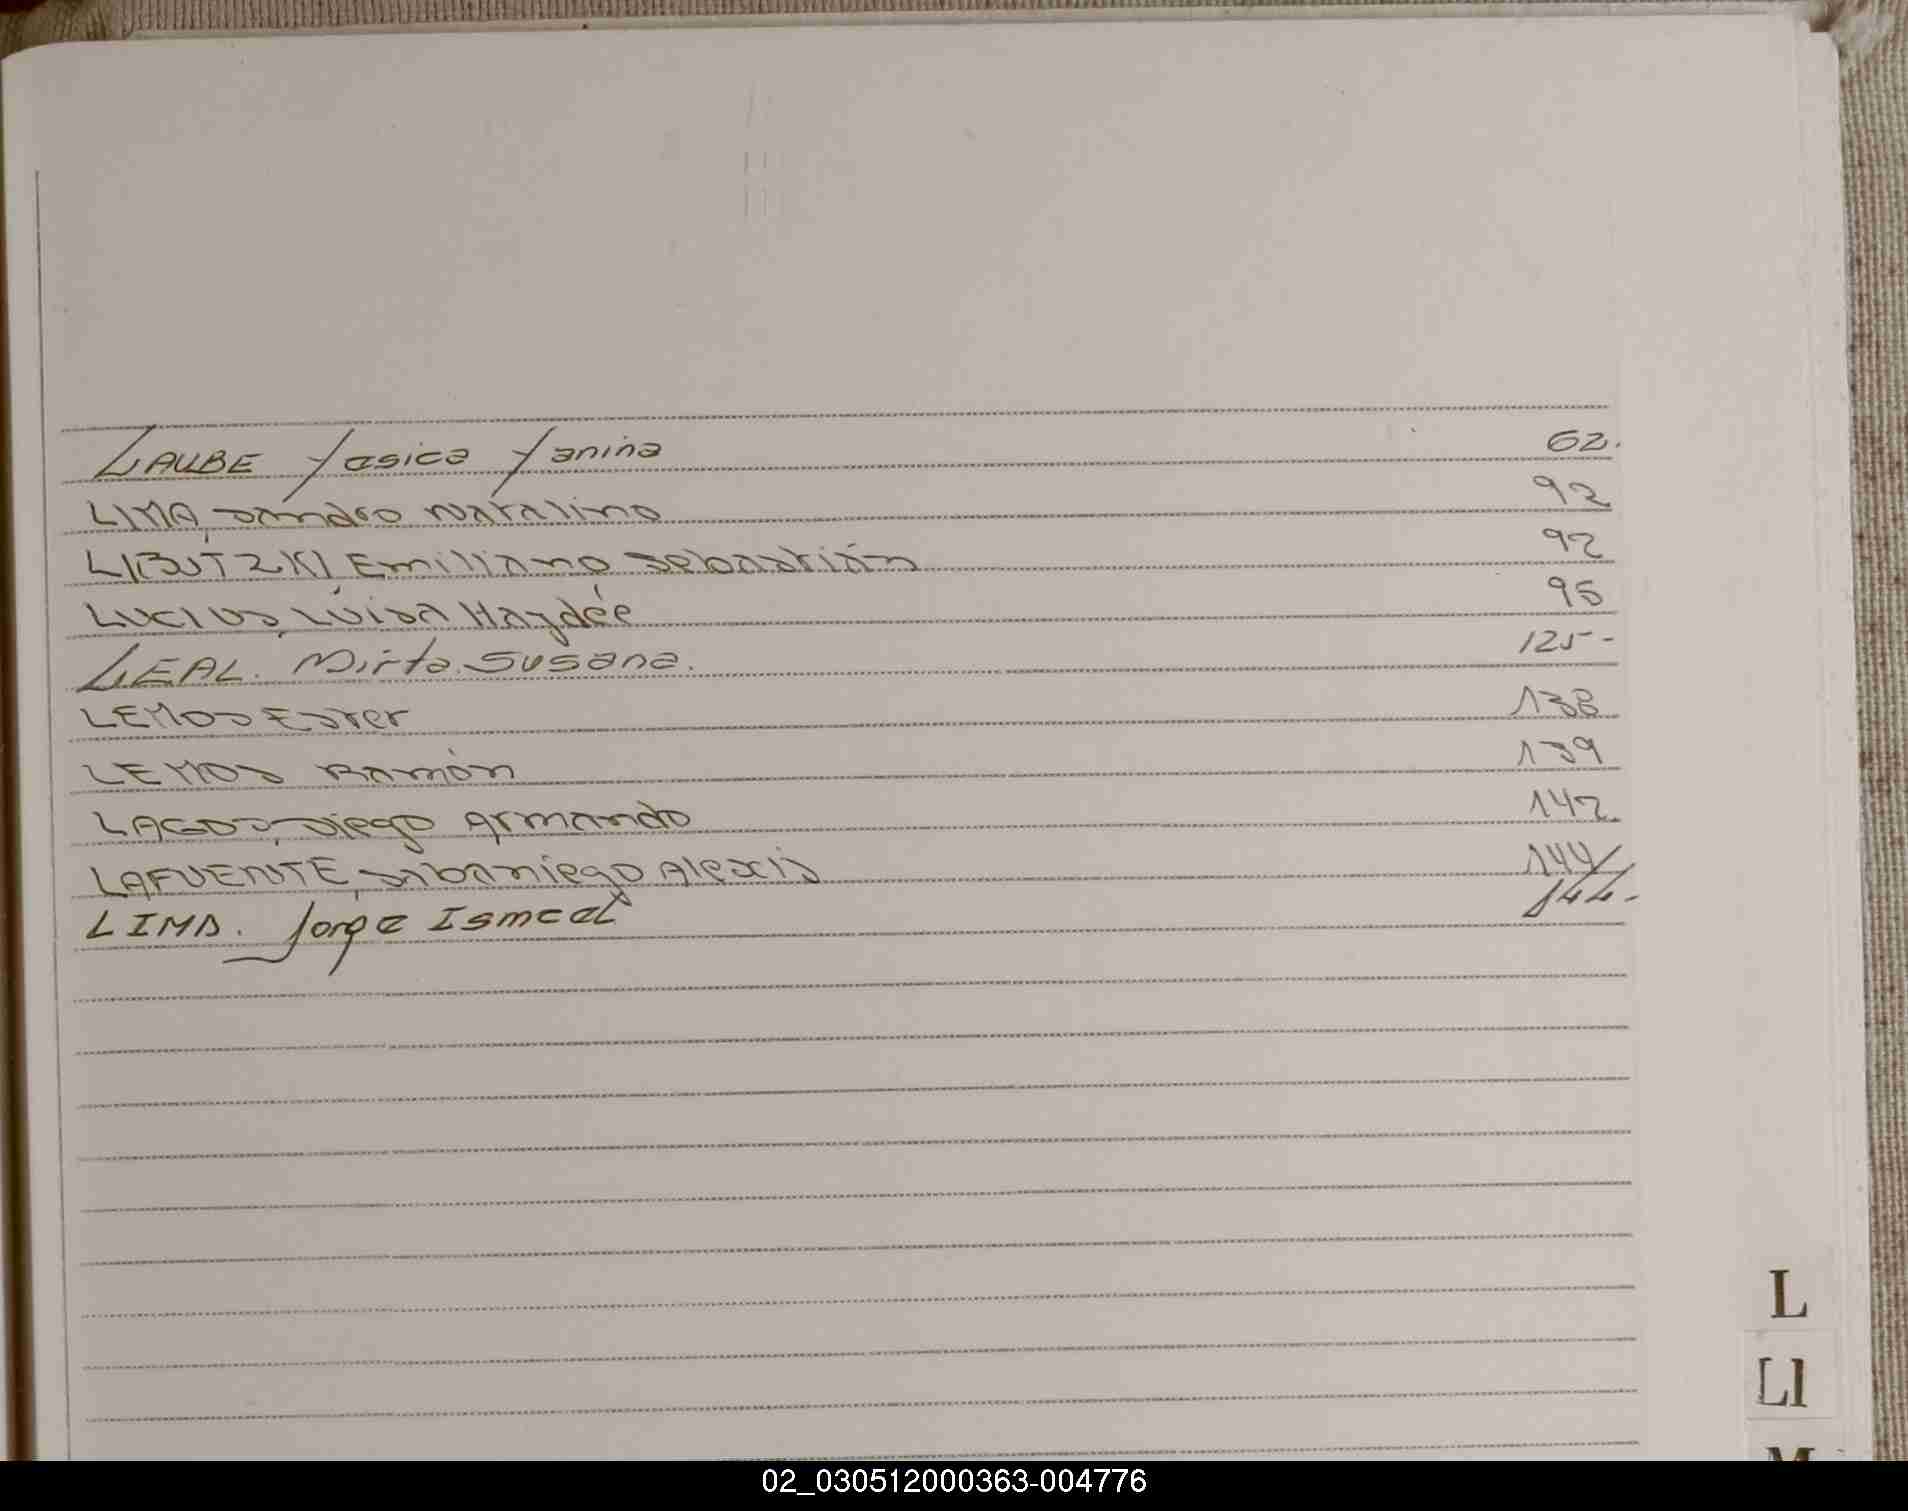 LAUBE Yasica Yanina 62.
LIMA, Sandro Natalino 92
LIBUTZKI, Emiliano Sebastián 92
LUCIUS, Luisa Haydée 95
LEAL. Mirta Susana. 125-
LEMOS Ester 138
LEMOS Ramón 139
LAGOS, Diego Armando 142
LAFUENTE, Alexis 144
LIMA. Jorge Ismael 144-
L
Ll
M
02_030512000363-004776